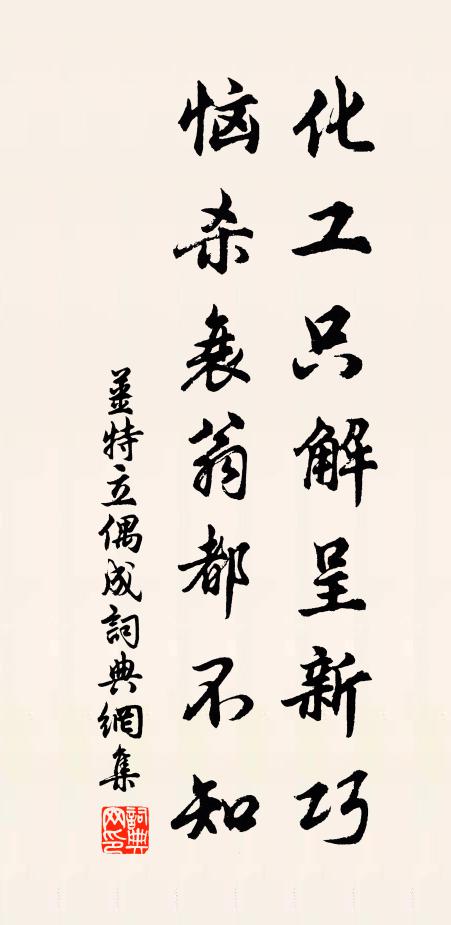 化工只解呈新巧
恼杀衰翁都不知
薑特立偶成詞典網集
詞典网印